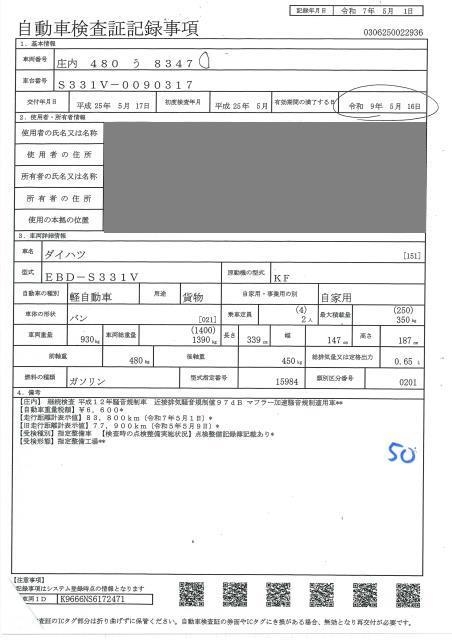 記録年月日 令和 7年 5月 1日
自動車検査証記録事項
0306250022936
1. 基本情報
車両番号 庄内 480 う 8347
車台番号 S331V-0090317
交付年月日 平成25年 5月 17日 初度検査年月 平成25年 5月 有効期間の満了する日 令和 9年 5月 16日
2. 使用者・所有者情報
使用者の氏名又は名称
使用者の住所
所有者の氏名又は名称
所有者の住所
使用の本拠の位置
3. 車両詳細情報
車名 ダイハツ [151]
型式 EBD-S331V 原動機の型式 KF
自動車の種別 軽自動車 用途 貨物 自家用・事業用の別 自家用
車体の形状 バン [021] 乗車定員 (4) 2人 最大積載量 (250) 350kg
車両重量 930kg 車両総重量 (1400) 1390kg 長さ 339cm 幅 147cm 高さ 187cm
前軸重 480kg 後軸重 450kg 総排気量又は定格出力 0.65L
燃料の種類 ガソリン 型式指定番号 15984 類別区分番号 0201
4. 備考
【庄内】 継続検査 平成12年騒音規制車 近接排気騒音規制値97dB マフラー加速騒音規制適用車**
【自動車重量税額】¥6,600*
【走行距離計表示値】83,800km(令和7年5月1日)*
【旧走行距離計表示値】77,900km(令和5年5月9日)*
【受検種別】指定整備車 【検査時の点検整備実施状況】点検整備記録簿記載あり*
【受検形態】指定整備工場**
50
【注意事項】
記録事項はシステム登録時点の情報となります
車両ID K9666NS6172471
査証のICタグ部分は折り曲げずに保管ください。自動車検査証の券面やICタグにき損がある場合、無効となり再交付が必要です。